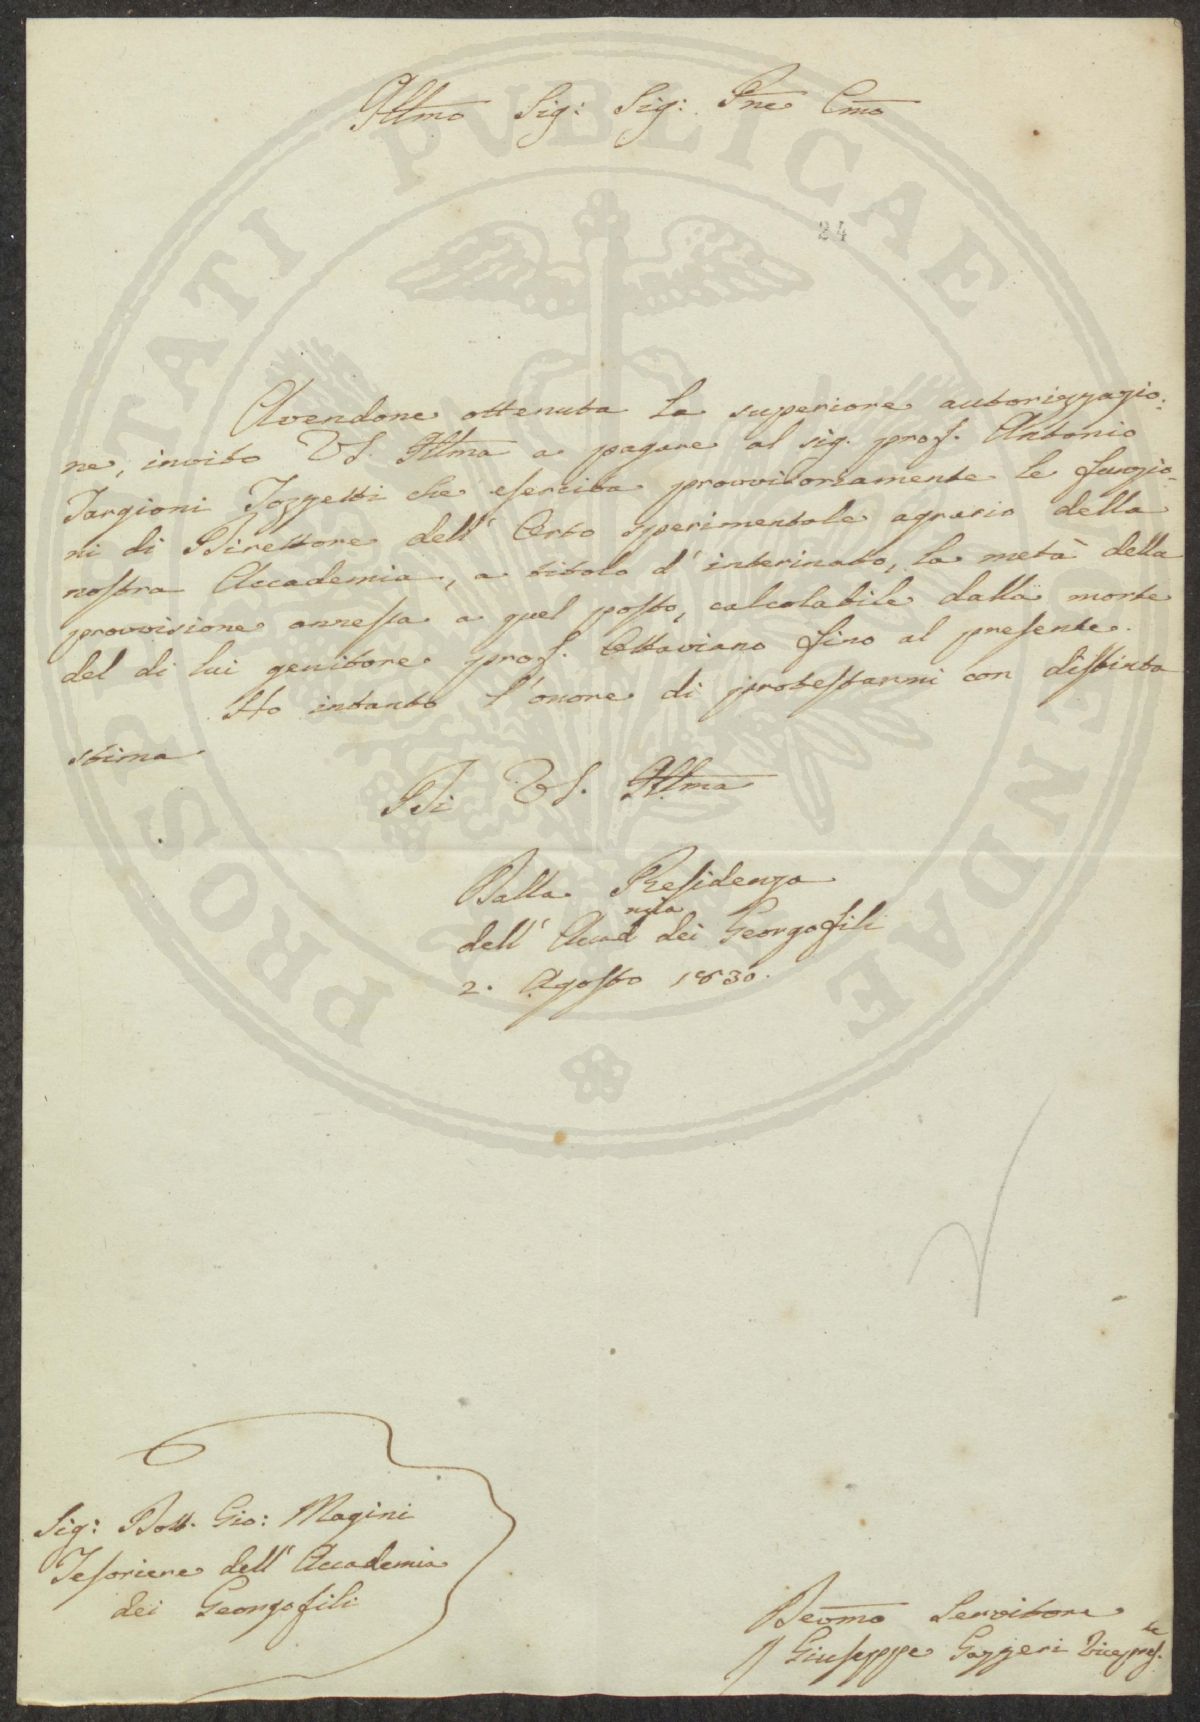 Illmo Sig: Sig: Pne Cmo
24
Avendone ottenuta la superiore autorizzazio-
ne, invito VS. Illma a pagare al sig. prof. Antonio
Targioni Tozzetti che esercita provvisoriamente le funzio-
ni di Direttore dell' Orto sperimentale agrario della
nostra Accademia, a titolo d' interinato, la metà della
provvisione annessa a quel posto, calcolabile dalla morte
del di lui genitore prof. Ottaviano fino al presente.
Ho intanto l' onore di protestarmi con distinta
stima
Di VS. Illma
Dalla Presidenza
dell' Accad.mia dei Georgofili
2. Agosto 1830.
Sig: Dott. Gio: Magini
Tesoriere dell' Accademia
dei Georgofili
Devomo Servitore
Giuseppe Gazzeri Vicepres.te
PROSPERITATI PVBLICAE AVGENDAE